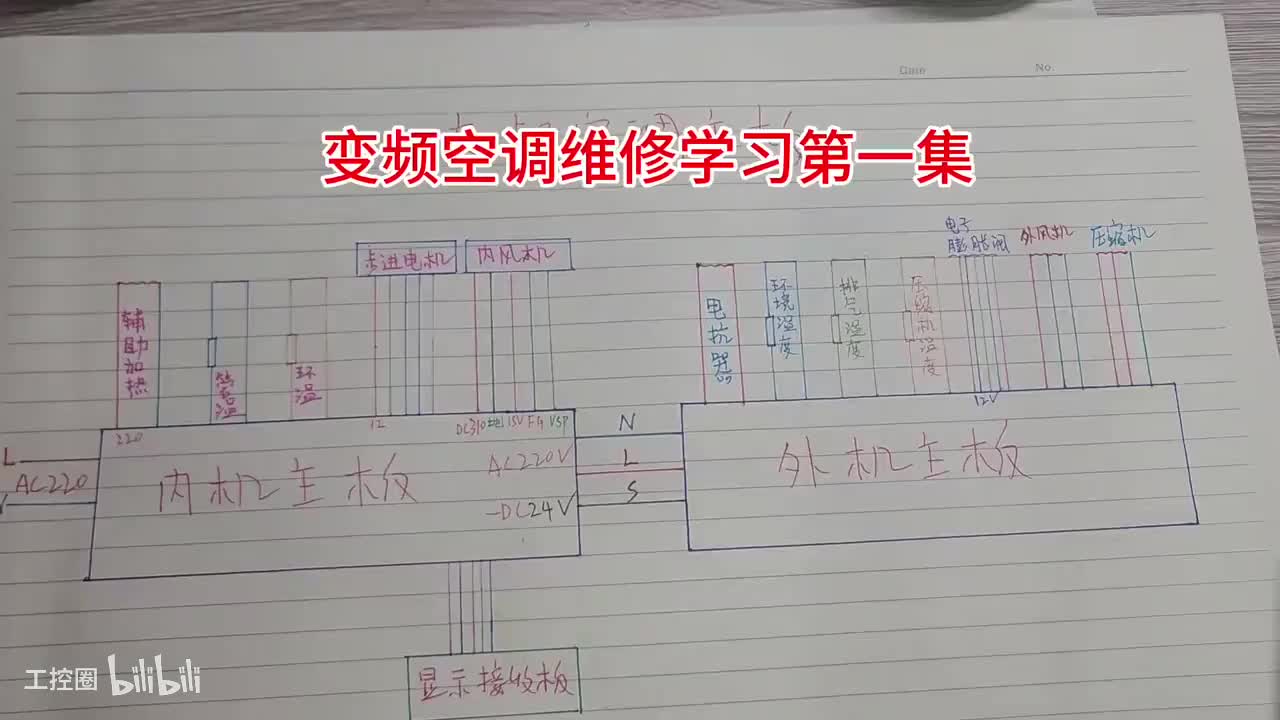 Date No.
变频空调维修学习第一集
步进电机 内风机
电子膨胀阀 外风机 压缩机
辅助加热 管温 环温
电抗器 环境温度 排气温度 压缩机温度
220 12 DC310 地 15V FG VSP
12V
L AC220
内机主板
AC220V
-DC24V
N
L
S
外机主板
显示接收板
工控圈 bilibili